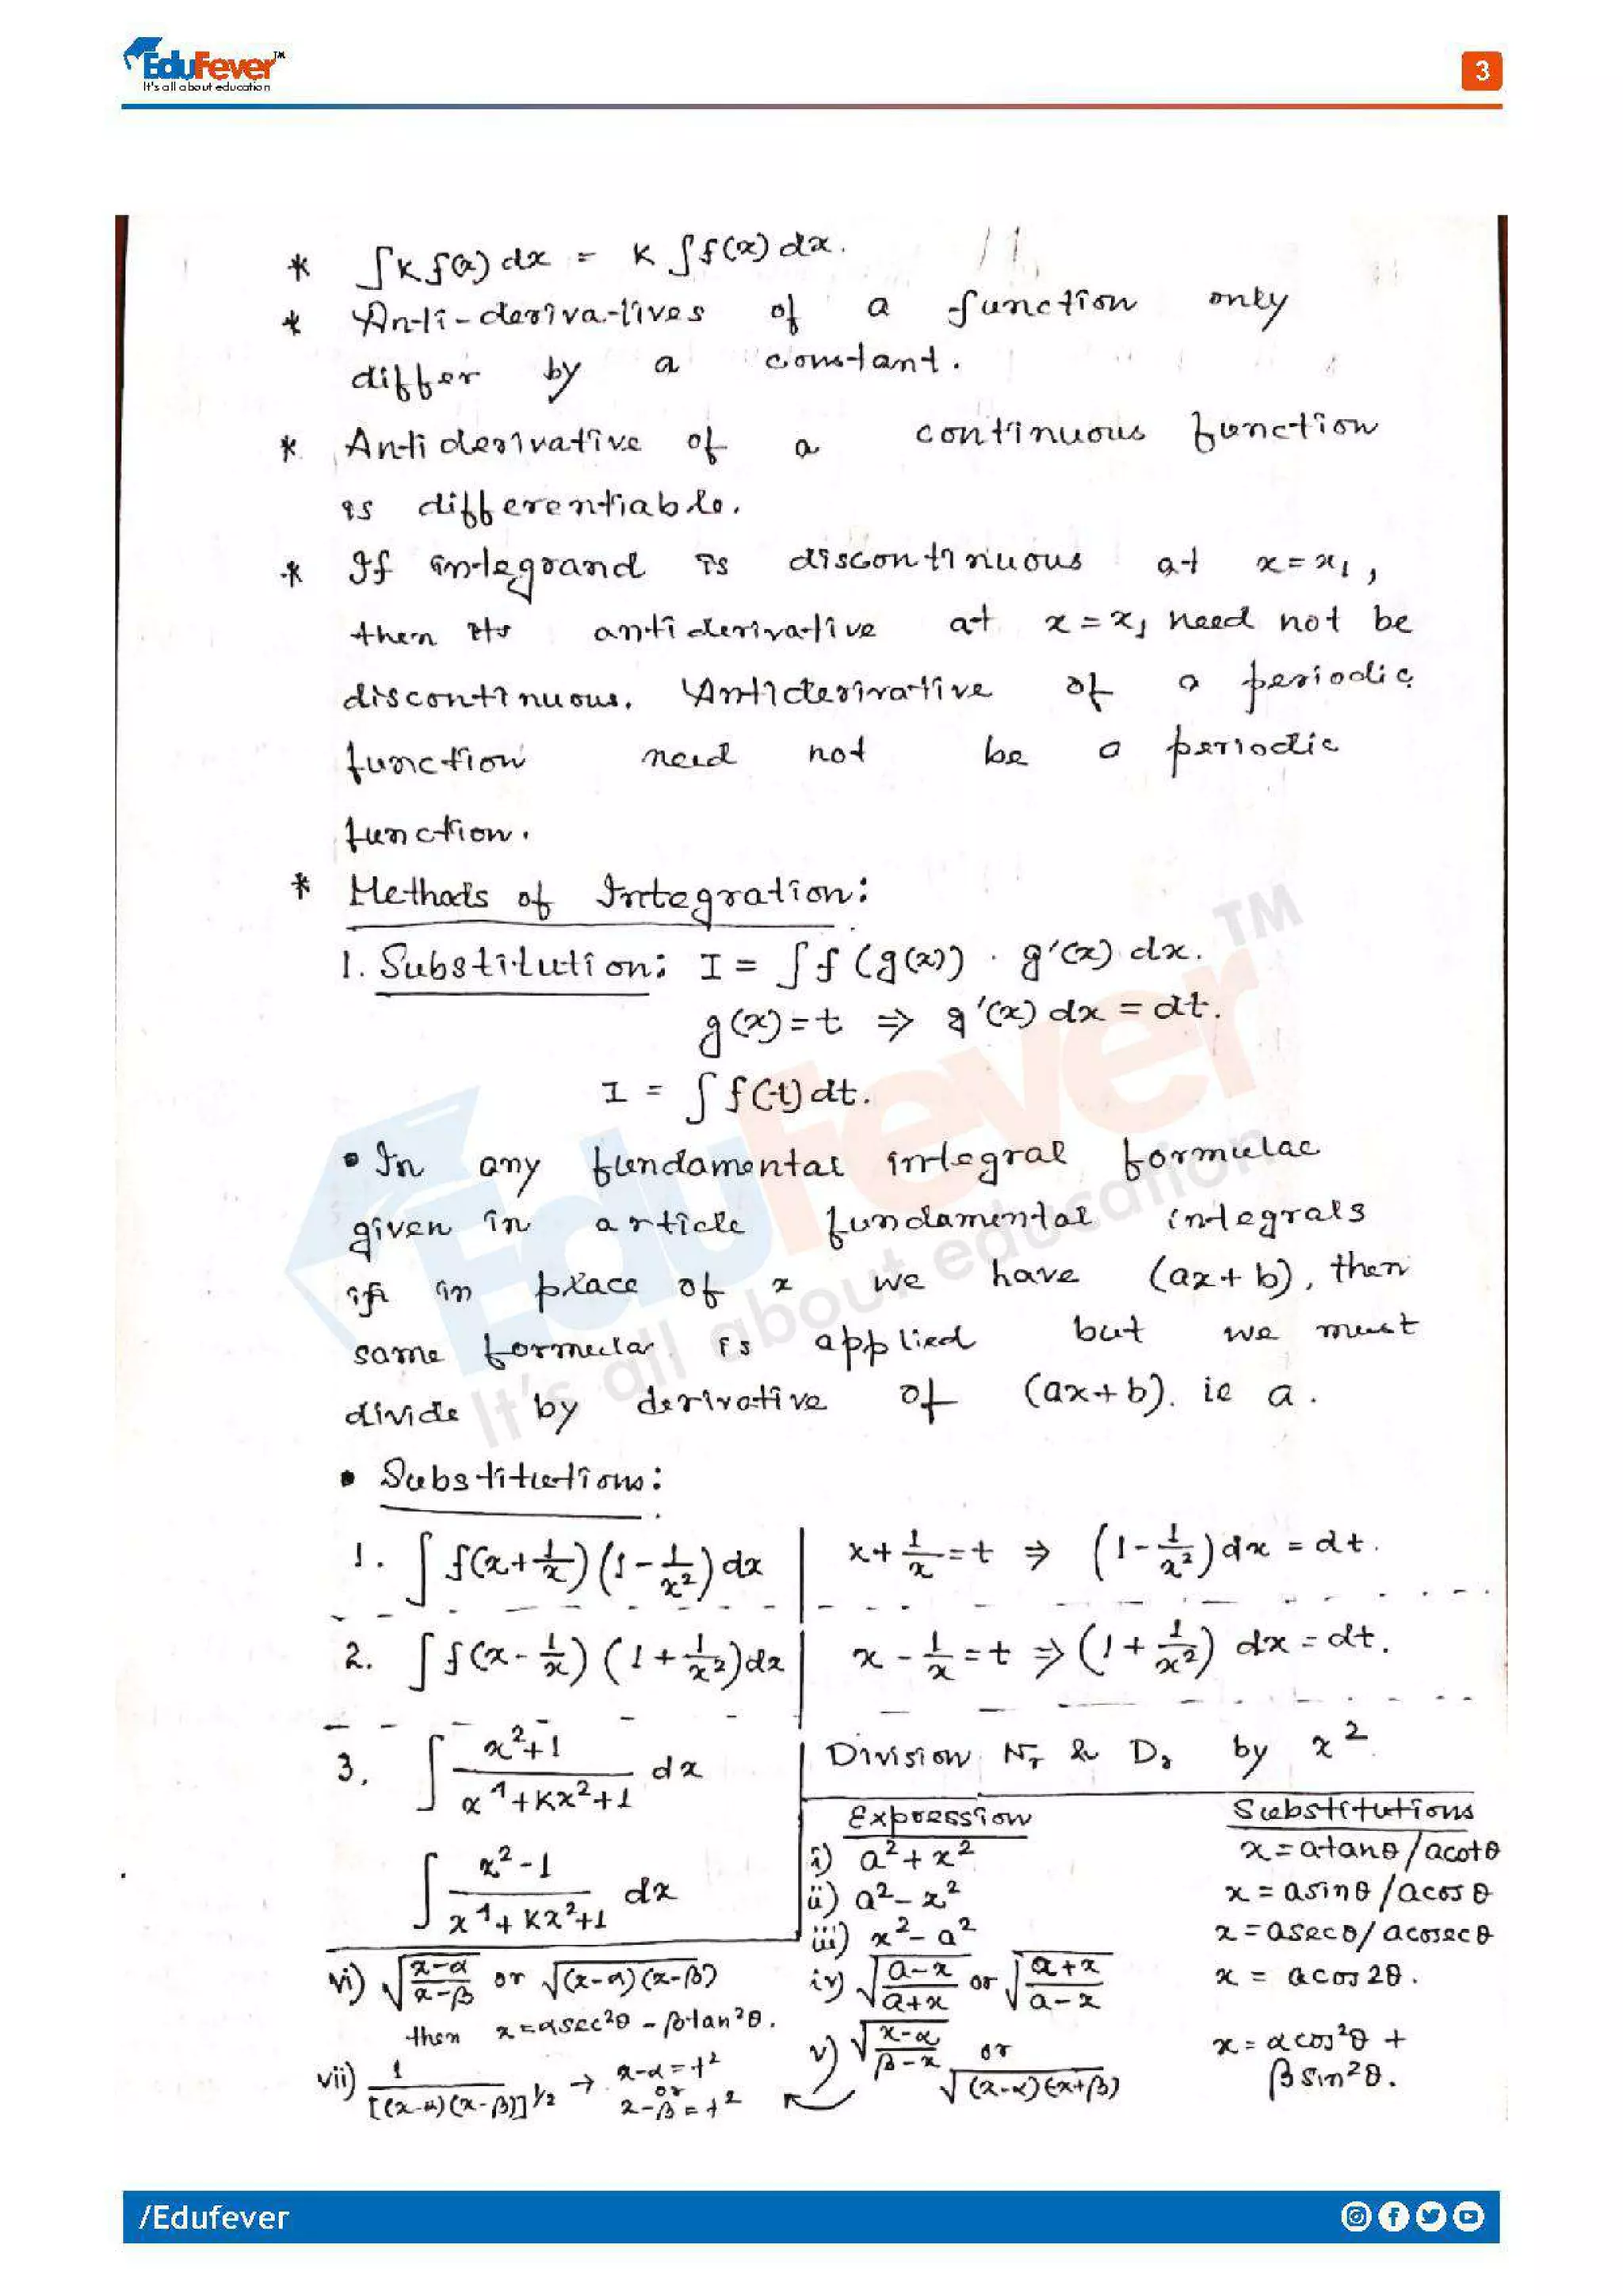 EduFever™
It's all about education
3
* ∫K f(x) dx = K ∫f(x) dx.
* Anti-derivatives of a function only
differ by a constant.
* Antiderivative of a continuous function
is differentiable.
* If integrand is discontinuous at x = x₁,
then its antiderivative at x = x₁ need not be
discontinuous. Antiderivative of a periodic
function need not be a periodic
function.
* Methods of Integration:
1. Substitution: I = ∫f(g(x)) · g'(x) dx.
g(x) = t ⇒ g'(x) dx = dt.
I = ∫f(t) dt.
• In any fundamental integral formulae
given in article fundamental integrals
if in place of x we have (ax+b), then
same formula is applied but we must
divide by derivative of (ax+b). ie a.
• Substitutions:
1. ∫f(x+1/x)(1-1/x²)dx | x+1/x=t ⇒ (1-1/x²)dx = dt.
2. ∫f(x-1/x)(1+1/x²)dx | x-1/x=t ⇒ (1+1/x²)dx = dt.
3. ∫(x²+1)/(x⁴+Kx²+1) dx | Division Nr & Dr by x²
∫(x²-1)/(x⁴+Kx²+1) dx
Expression Substitutions
i) a²+x² x = atanθ/acotθ
ii) a²-x² x = asinθ/acosθ
iii) x²-a² x = asecθ/acosecθ
iv) √((a-x)/(a+x)) or √((a+x)/(a-x)) x = acos2θ.
v) √((x-α)/(β-x)) or √((x-α)(-x+β)) x = αcos²θ + βsin²θ.
vi) √((x-α)/(x-β)) or √((x-α)(x-β))
then x = αsec²θ - βtan²θ.
vii) 1/[(x-α)(x-β)]^1/2 → x-α = t²
or
x-β = t²
/Edufever